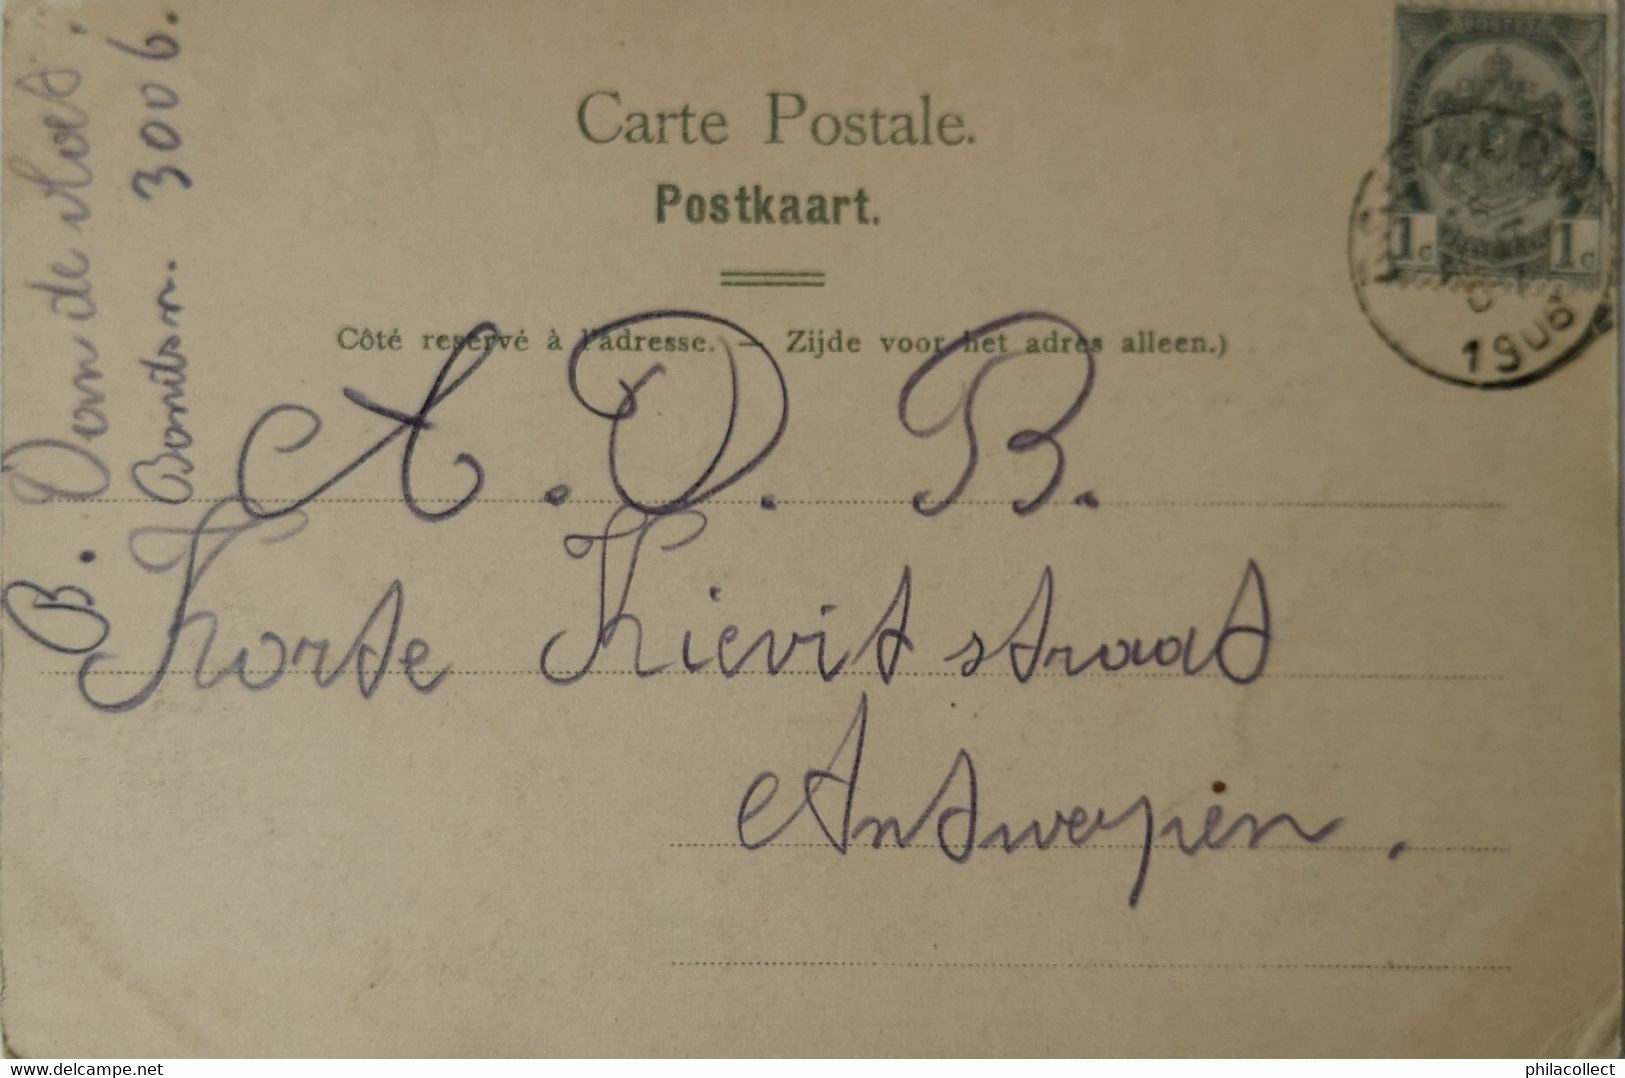 Carte Postale.
Postkaart.
Côté reservé à l'adresse. — Zijde voor het adres alleen.)
A. D. B.
Korte Kievitstraat
Antwerpen.
B.
3006.
1c 1c
1906
delcampe.net
philacollect